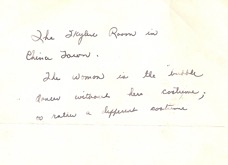 The Skyline Room in
China Town.
The woman is the "bubble
dancer without her costume;
or rather a different costume